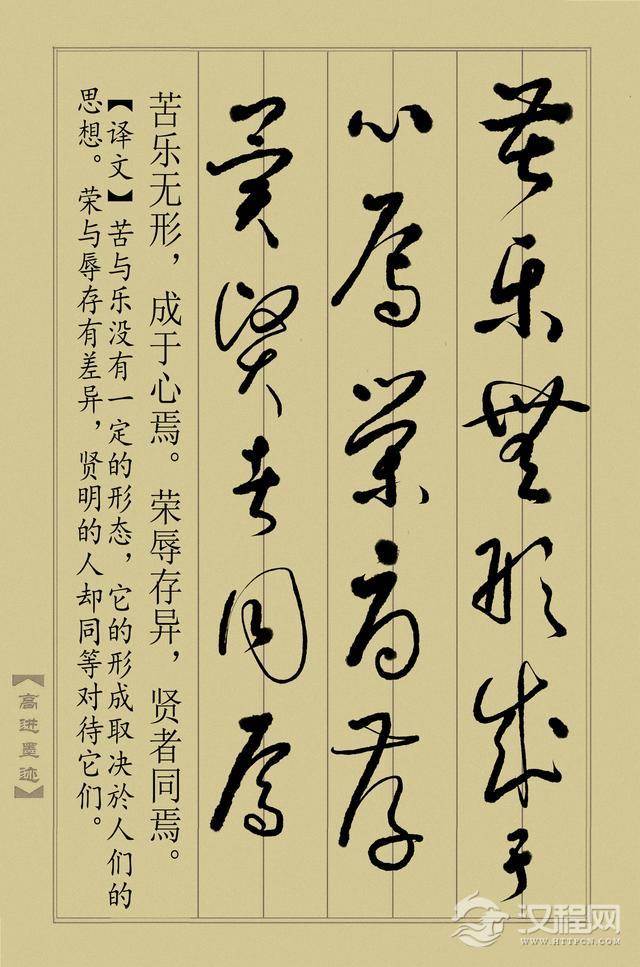 苦樂無形成于
心焉榮辱存
異賢者同焉
苦乐无形，成于心焉。荣辱存异，贤者同焉。
【译文】苦与乐没有一定的形态，它的形成取决於人们的
思想。荣与辱存有差异，贤明的人却同等对待它们。
【高进墨迹】
汉程网
WWW.HTTPCN.COM